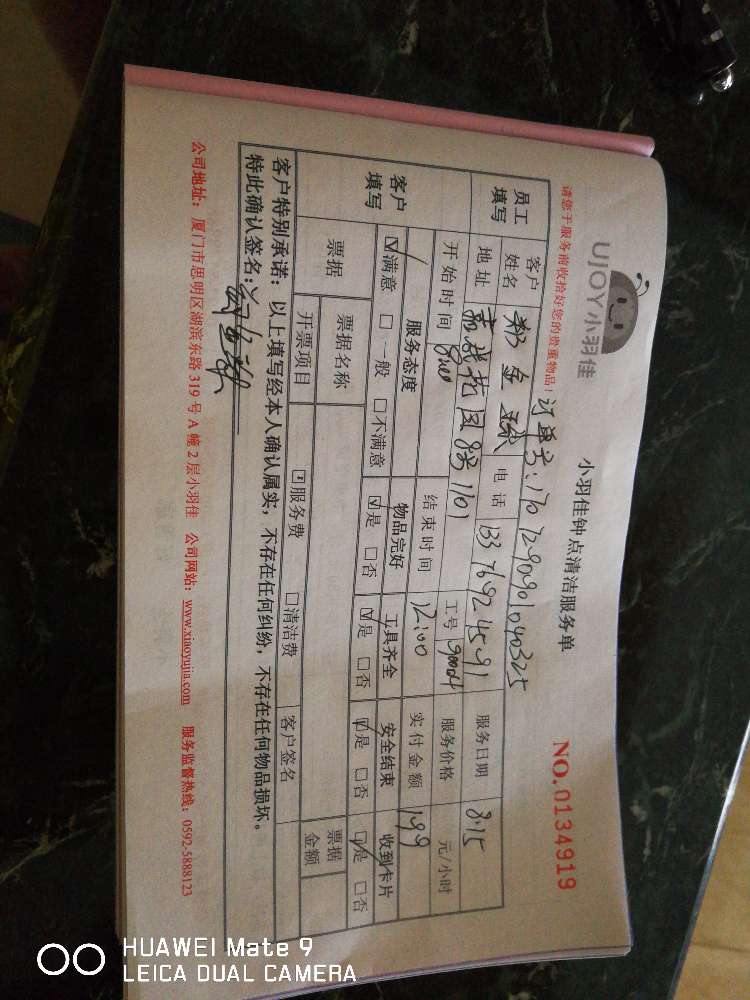 UJOY小羽佳
小羽佳钟点清洁服务单
NO.0134919
请您于服务前收拾好您的贵重物品！
订单号:170729090104325
员工填写
客户姓名
电话 13376924591
服务日期 8.15
地址 8号1101
工号 9004
服务价格 元/小时
开始时间 8:00
结束时间 12:00
实付金额 199
客户填写
服务态度 物品完好 工具齐全 安全结束 收到卡片
☑满意 □一般 □不满意 ☑是 □否 ☑是 □否 ☑是 □否 ☑是 □否
票据
票据名称
票据金额
开票项目 □服务费 □清洁费 客户签名
客户特别承诺：以上填写经本人确认属实，不存在任何纠纷，不存在任何物品损坏。
特此确认签名:
公司地址：厦门市思明区湖滨东路 319 号 A 幢 2 层小羽佳 公司网站：www.xiaoyujia.com 服务监督热线：0592-5888123
HUAWEI Mate 9
LEICA DUAL CAMERA